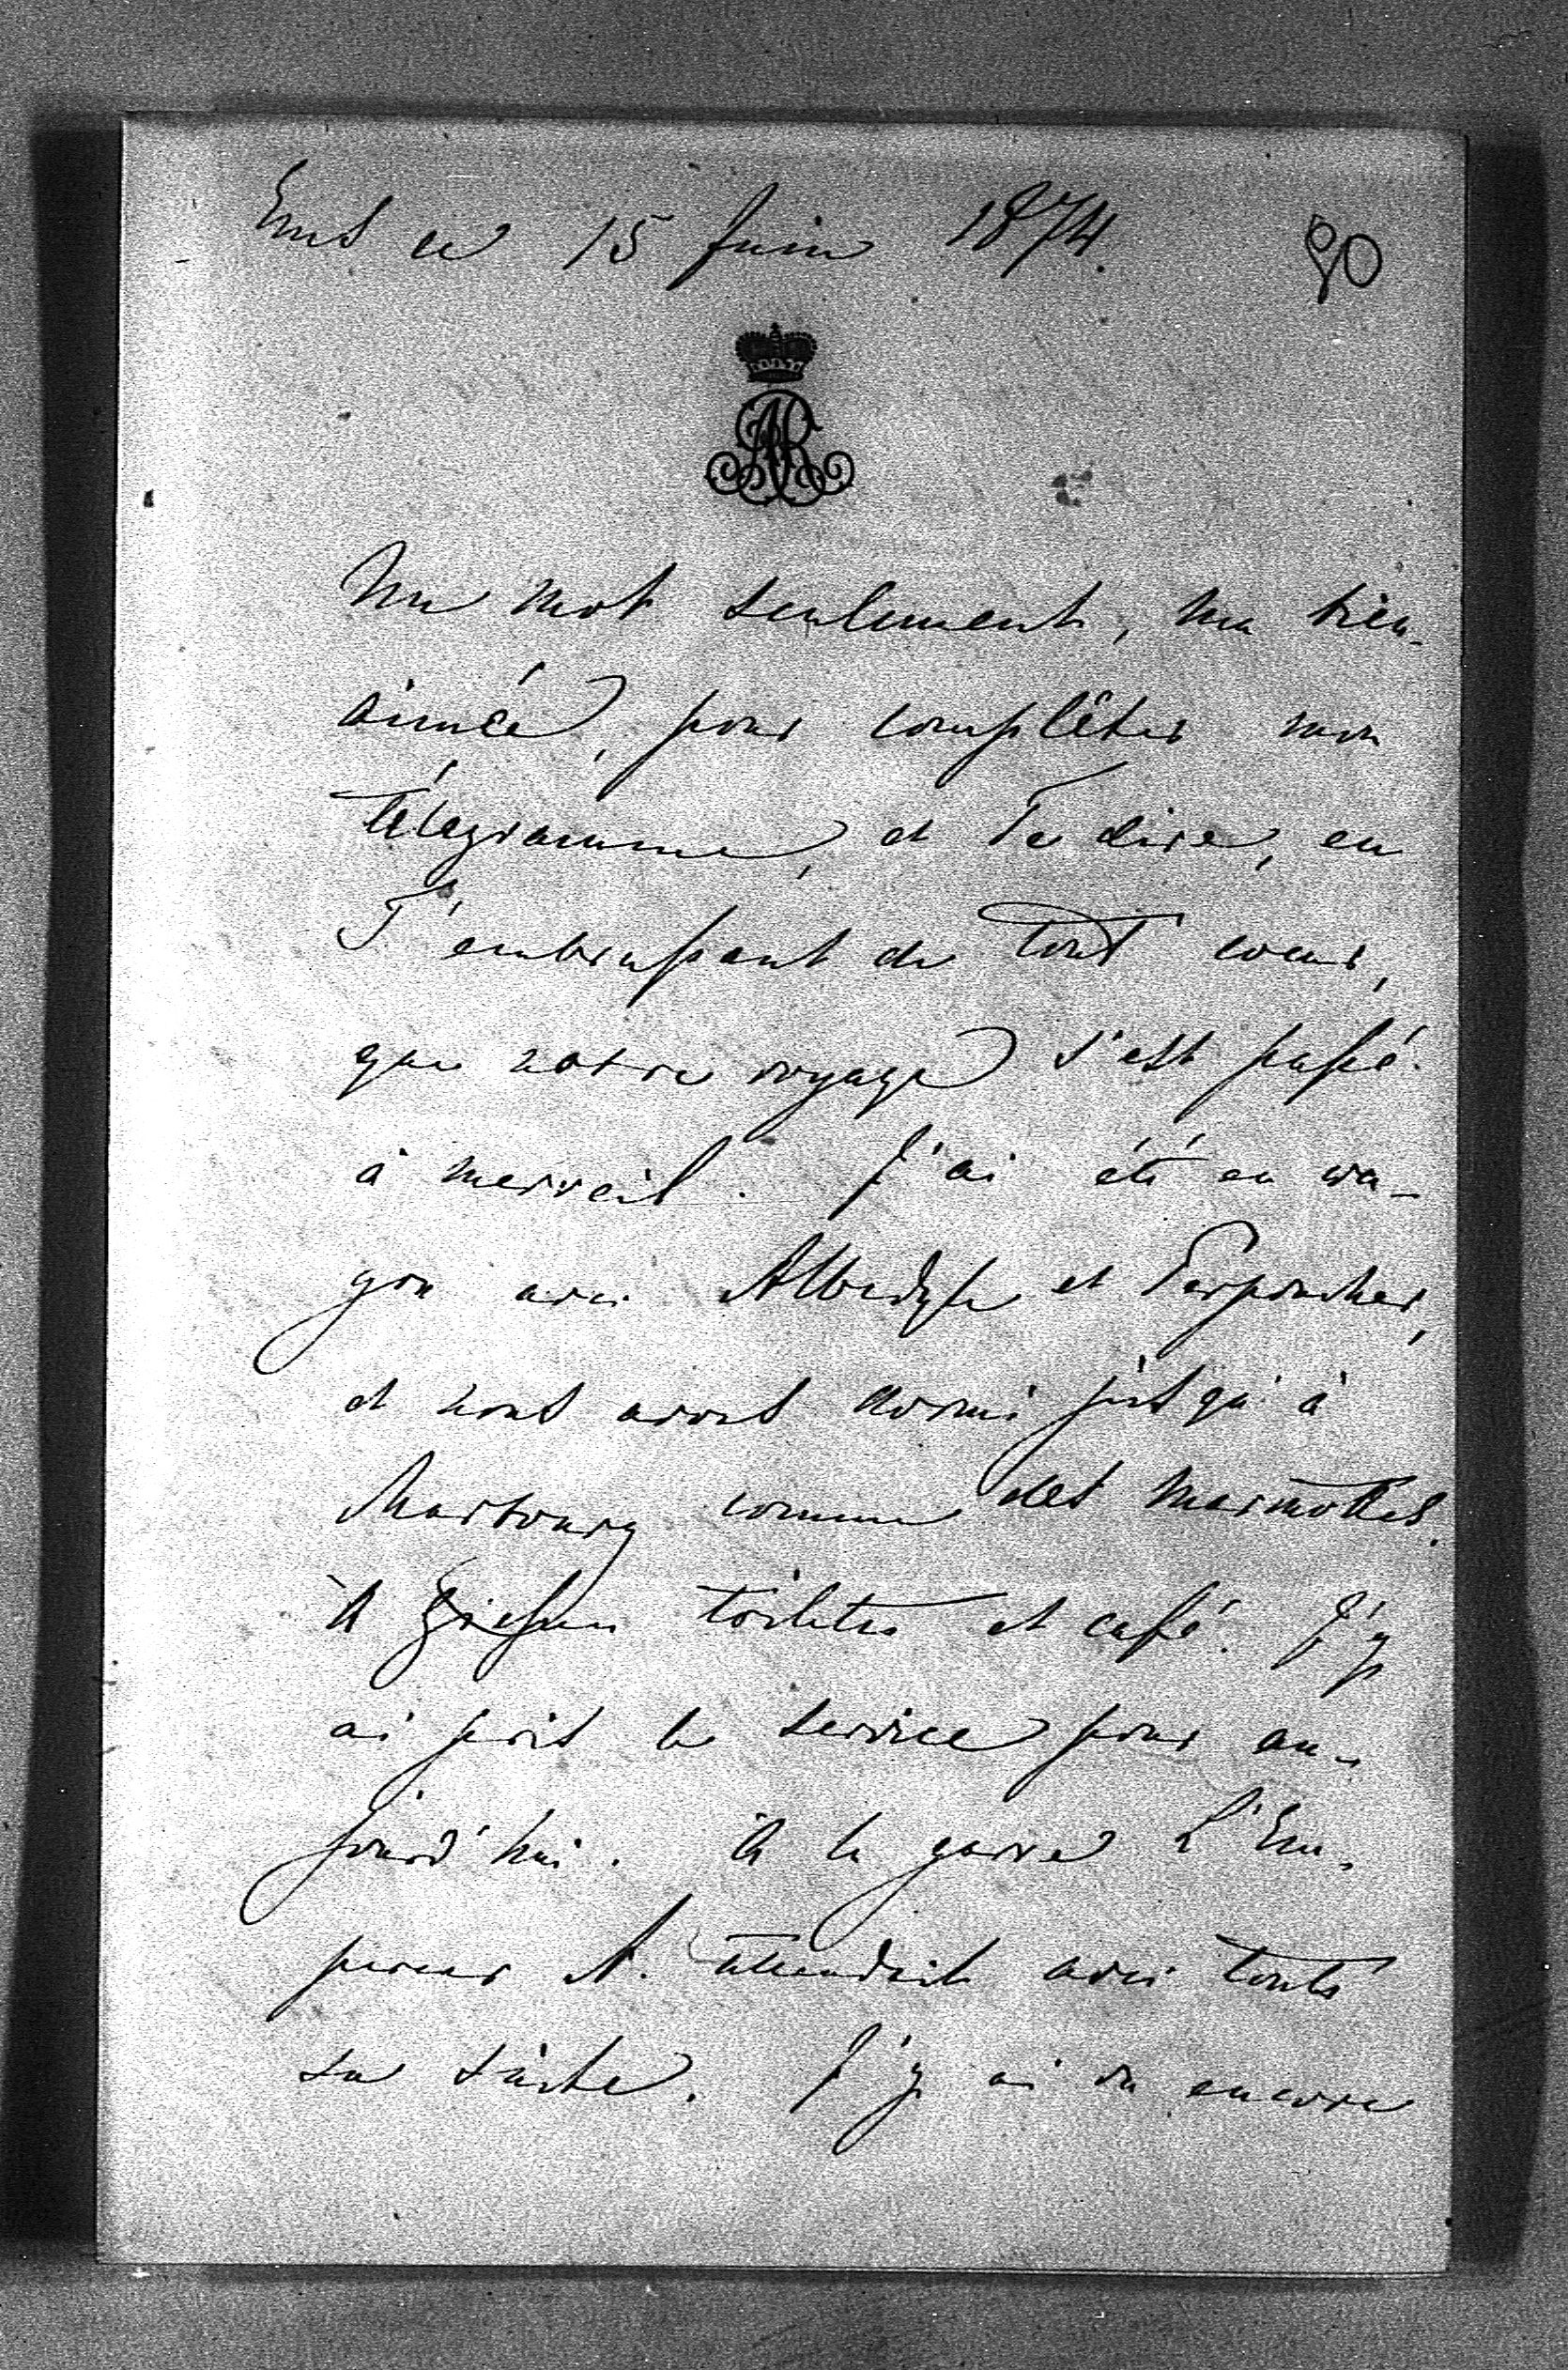 Ems ce 15 Juin 1874. 90
AR
Un mot seulement, ma bien-
aimée, pour complêter mon
télégramme, et Te dire, en
T'embrassant de tout coeur,
que notre voyage s'est passé
à merveil. J'ai été en wa-
gon avec Albedyll et Perponcher,
et nous avons dormi jusqu'à
Marbourg comme des marmottes.
A Giessen toilette et café. J'y
ai pris le service pour au-
jourd'hui. A la garre L'Em-
pereur A. attendait avec toute
sa suite. J'y ai vu encore